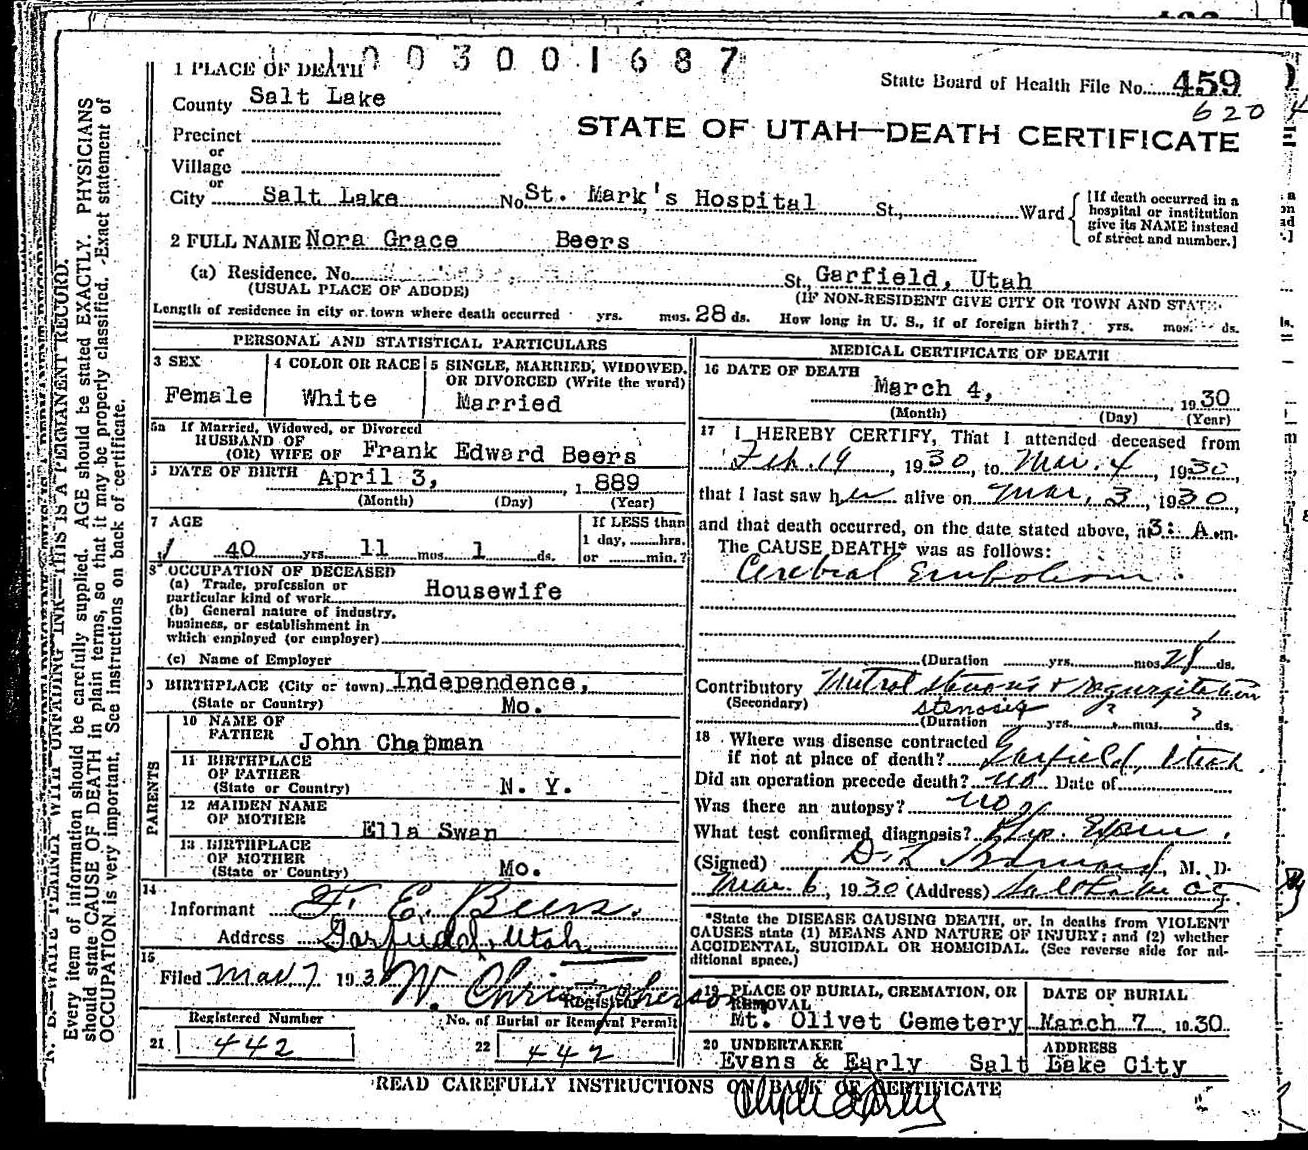 1003001687
1 PLACE OF DEATH
State Board of Health File No. 459
620
County Salt Lake
STATE OF UTAH—DEATH CERTIFICATE
Precinct
or
Village
or
City Salt Lake No. St. Mark's Hospital St., Ward
[If death occurred in a hospital or institution give its NAME instead of street and number.]
2 FULL NAME Nora Grace Beers
(a) Residence. No. St., Garfield, Utah
(USUAL PLACE OF ABODE) (IF NON-RESIDENT GIVE CITY OR TOWN AND STATE
Length of residence in city or town where death occurred yrs. mos. 28 ds. How long in U. S., if of foreign birth? yrs. mos. ds.
PERSONAL AND STATISTICAL PARTICULARS
3 SEX
Female
4 COLOR OR RACE
White
5 SINGLE, MARRIED, WIDOWED,
OR DIVORCED (Write the word)
Married
5a If Married, Widowed, or Divorced
HUSBAND OF
(OR) WIFE OF Frank Edward Beers
DATE OF BIRTH April 3, 1889
(Month) (Day) (Year)
7 AGE
40 yrs. 11 mos. 1 ds.
If LESS than
1 day, hrs.
or min.?
8 OCCUPATION OF DECEASED
(a) Trade, profession or
particular kind of work Housewife
(b) General nature of industry,
business, or establishment in
which employed (or employer)
(c) Name of Employer
BIRTHPLACE (City or town) Independence,
(State or Country) Mo.
PARENTS
10 NAME OF
FATHER John Chapman
11 BIRTHPLACE
OF FATHER
(State or Country) N. Y.
12 MAIDEN NAME
OF MOTHER Ella Swan
13 BIRTHPLACE
OF MOTHER
(State or Country) Mo.
14
Informant F. E. Beers.
Address Garfield, Utah
15
Filed Mar 7, 193 W. Christopherson
Registrar
Registered Number
21 442
No. of Burial or Removal Permit
22 442
MEDICAL CERTIFICATE OF DEATH
16 DATE OF DEATH
March 4, 1930
(Month) (Day) (Year)
17 I HEREBY CERTIFY, That I attended deceased from
Feb. 19, 1930, to Mar. 4, 1930,
that I last saw her alive on Mar. 3, 1930,
and that death occurred, on the date stated above, at 3: A.m.
The CAUSE DEATH* was as follows:
Cerebral Embolism.
(Duration yrs. mos. 28 ds.
Contributory Mitral stenosis & regurgitation
(Secondary) stenosis
(Duration ? yrs. mos. ? ds.
18 Where was disease contracted
if not at place of death? Garfield, Utah.
Did an operation precede death? no Date of
Was there an autopsy? no
What test confirmed diagnosis? Exam.
(Signed) M. D.
Mar. 6, 1930 (Address) Salt Lake City
*State the DISEASE CAUSING DEATH, or, in deaths from VIOLENT
CAUSES state (1) MEANS AND NATURE OF INJURY; and (2) whether
ACCIDENTAL, SUICIDAL OR HOMICIDAL. (See reverse side for ad-
ditional space.)
19 PLACE OF BURIAL, CREMATION, OR
REMOVAL
Mt. Olivet Cemetery
DATE OF BURIAL
March 7 1930
20 UNDERTAKER
Evans & Early
ADDRESS
Salt Lake City
READ CAREFULLY INSTRUCTIONS ON BACK OF CERTIFICATE
Clyde Early
N. B.—WRITE PLAINLY WITH UNFADING INK—THIS IS A PERMANENT RECORD.
Every item of information should be carefully supplied. AGE should be stated EXACTLY. PHYSICIANS
should state CAUSE OF DEATH in plain terms, so that it may be properly classified. Exact statement of
OCCUPATION is very important. See instructions on back of certificate.